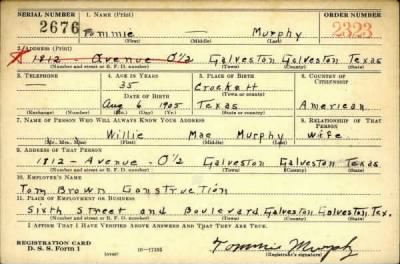 SERIAL NUMBER 1. NAME (Print) ORDER NUMBER
2676 Tommie Murphy 2323
(First) (Middle) (Last)
2. ADDRESS (Print)
X 1812 - Avenue O 1/2 Galveston Galveston Texas
(Number and street or R. F. D. number) (Town) (County) (State)
3. TELEPHONE 4. AGE IN YEARS 5. PLACE OF BIRTH 6. COUNTRY OF CITIZENSHIP
35 Crockett
DATE OF BIRTH (Town or county)
Aug 6 1905 Texas American
(Exchange) (Number) (Mo.) (Day) (Yr.) (State or country)
7. NAME OF PERSON WHO WILL ALWAYS KNOW YOUR ADDRESS 8. RELATIONSHIP OF THAT PERSON
Willie Mae Murphy Wife
(Mr., Mrs., Miss) (First) (Middle) (Last)
9. ADDRESS OF THAT PERSON
1812 - Avenue - O 1/2 Galveston Galveston Texas
(Number and street or R. F. D. number) (Town) (County) (State)
10. EMPLOYER'S NAME
Tom Brown Construction
11. PLACE OF EMPLOYMENT OR BUSINESS
Sixth Street and Boulevard Galveston Galveston, Tex.
(Number and street or R. F. D. number) (Town) (County) (State)
I AFFIRM THAT I HAVE VERIFIED ABOVE ANSWERS AND THAT THEY ARE TRUE.
REGISTRATION CARD
D. S. S. Form 1 16-17105 Tommie Murphy
(over) (Registrant's signature)